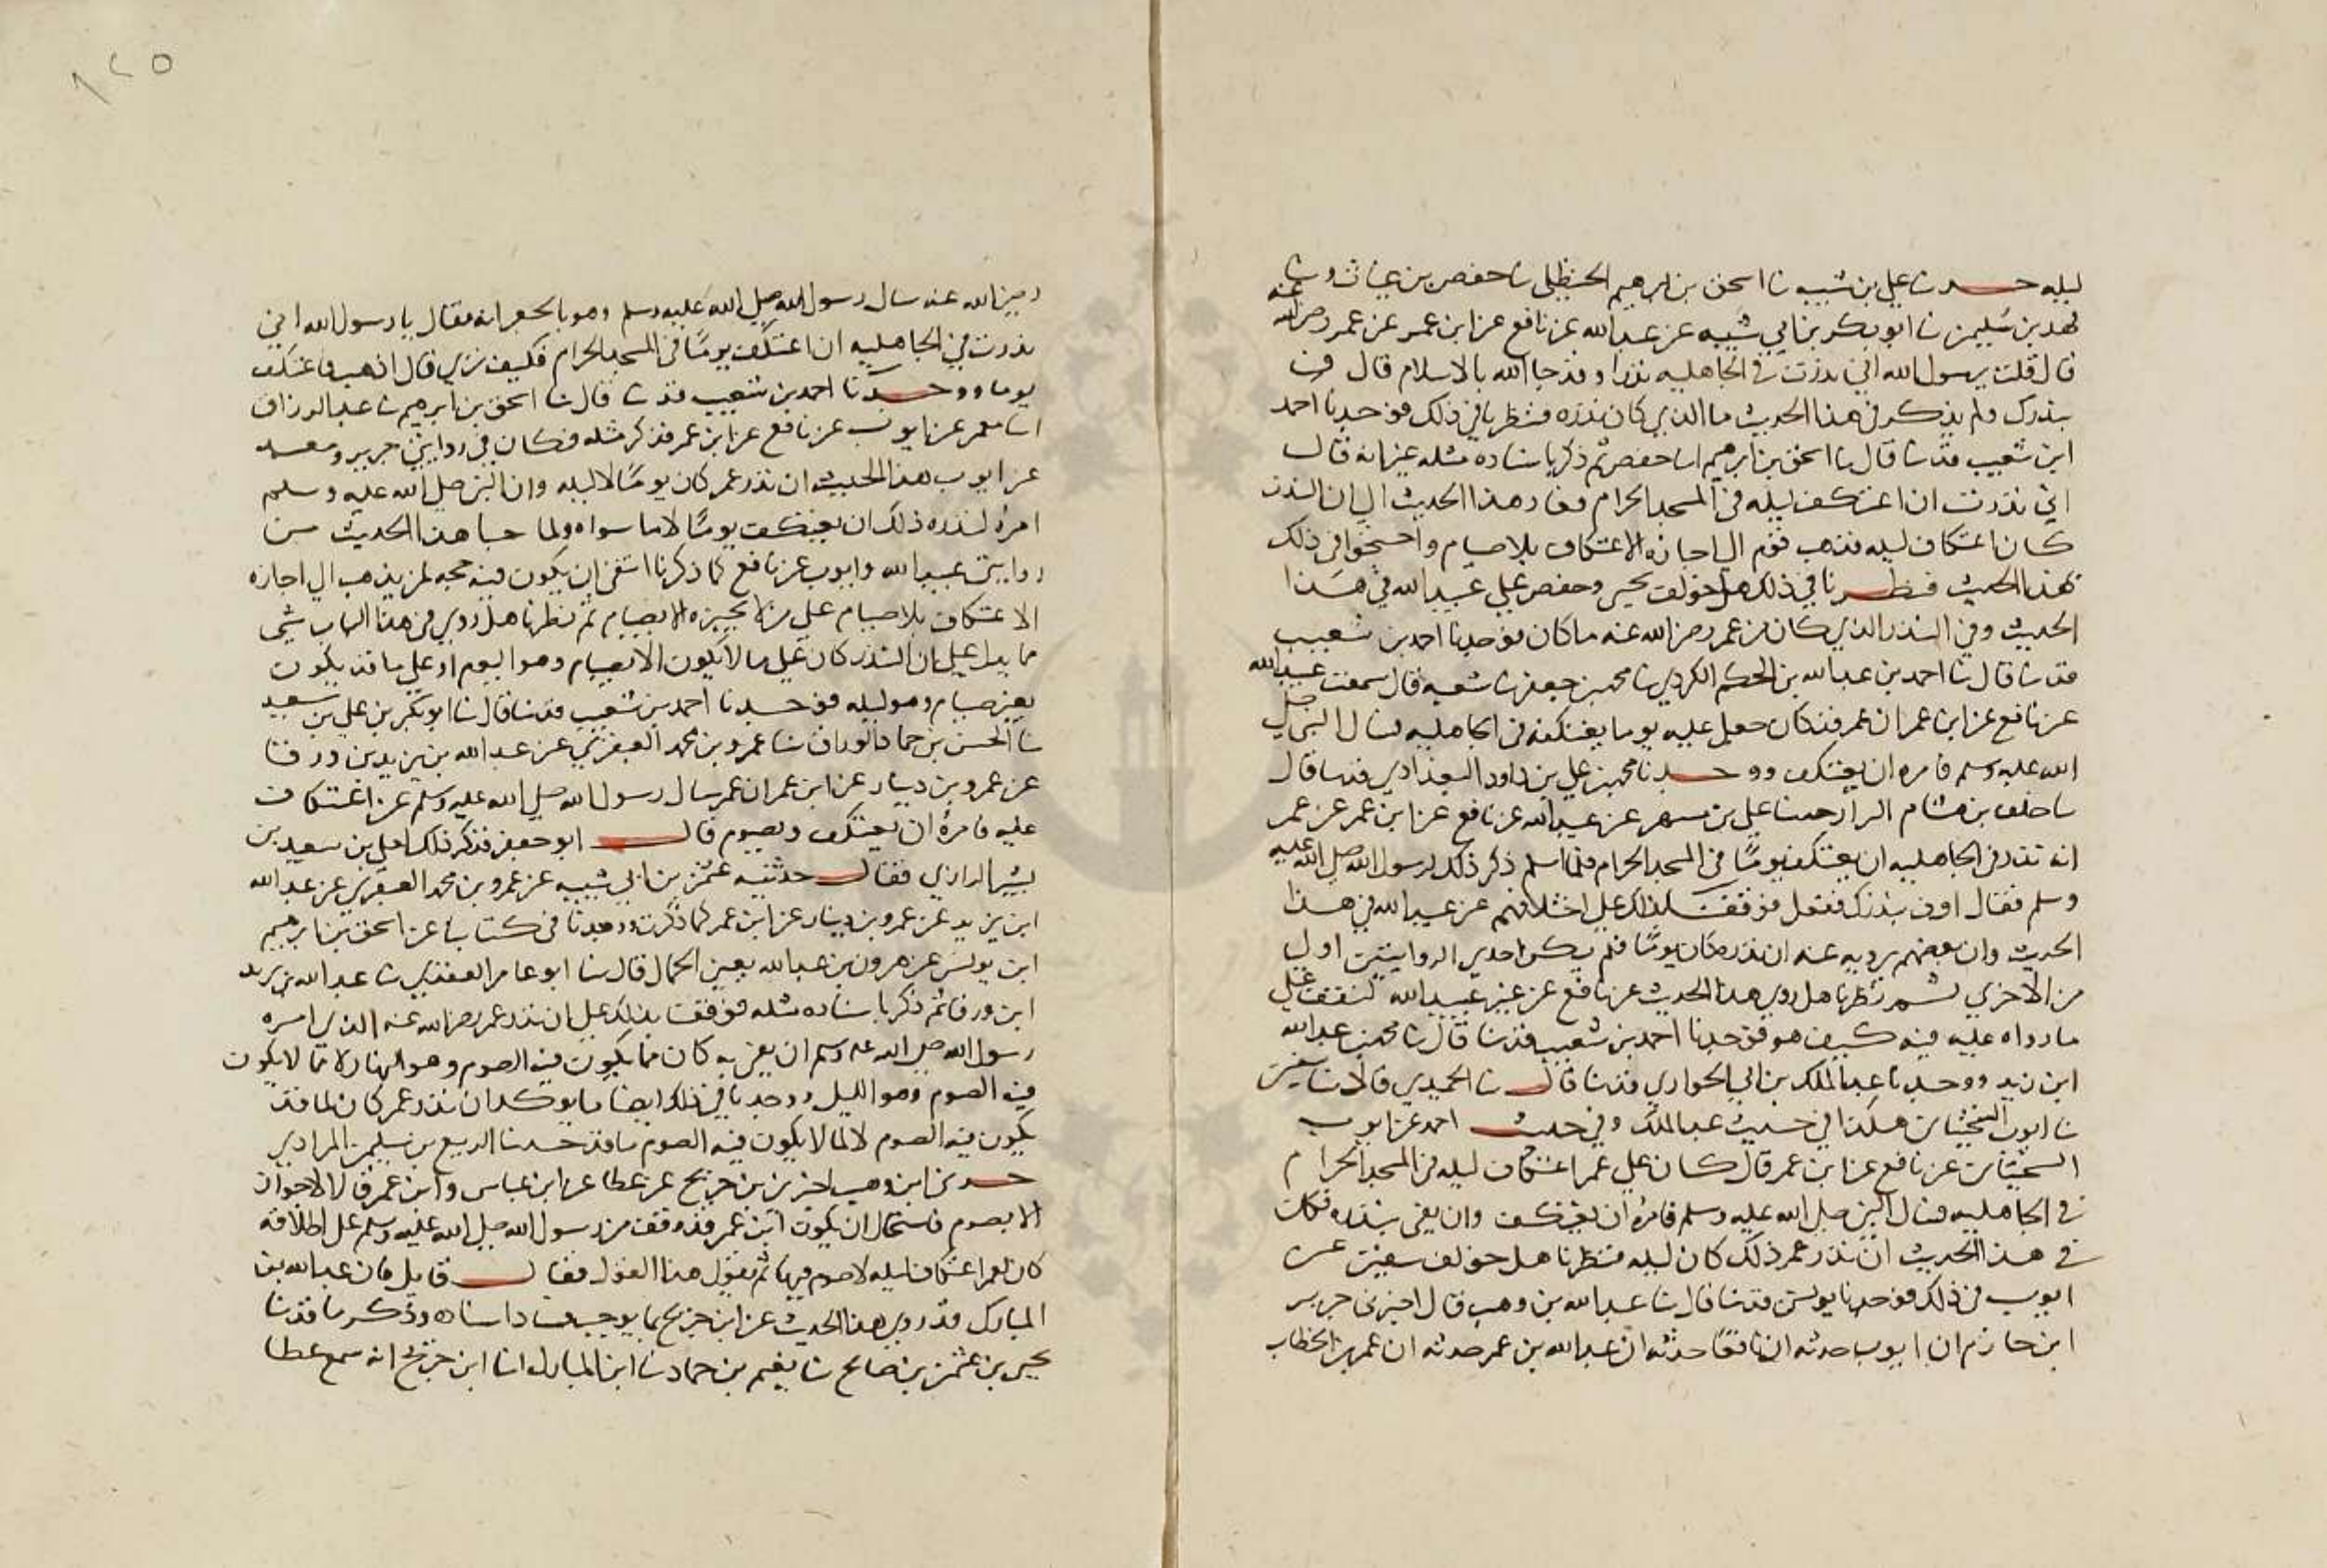 ليله حدثنا علي بن شيبه نا اسحق بن ابرهيم الحنظلي نا حفص بن غياث ونا
فهد بن سليمن نا ابو بكر بن ابي شيبه عن عبدالله عن نافع عن ابن عمر عن عمر رضي الله عنه
قال قلت يرسول الله اني نذرت في الجاهليه نذرا وقد جا الله بالاسلام قال فِ
بنذرك ولم يذكر في هذا الحديث ما الذي كان نذره فنظرنا في ذلك فوجدنا احمد
ابن شعيب قد نا قال نا اسحق بن ابرهيم انا حفص ثم ذكر باسناده مثله غير انه قال
اني نذرت ان اعتكف ليله في المسجد الحرام وفاد هذا الحديث الي ان النذر
كان اعتكاف ليله فذهب قوم الي اجازه الاعتكاف بلا صيام واحتجوا في ذلك
بهذا الحديث فنظرنا في ذلك هل خولف يحيى وحفص علي عبيد الله في هذا
الحديث وفي النذر الذي كان من عمر رضي الله عنه ما كان فوجدنا احمد بن شعيب
قد نا قال نا احمد بن عبد الله بن الحكم الكردي نا محمد بن جعفر نا شعبه قال سمعت عبيد الله
عن نافع عن ابن عمر ان عمر قد كان جعل عليه يوما يعتكفه في الجاهليه فسال النبي صلي
الله عليه وسلم فامره ان يعتكف ووجدنا محمد بن علي بن داود البغدادي قد نا قال
نا خلف بن هشام البزار حدثنا علي بن مسهر عن عبيد الله عن نافع عن ابن عمر عن عمر
انه نذر في الجاهليه ان يعتكف يومًا في المسجد الحرام فلما اسلم ذكر ذلك لرسول الله صلي الله عليه
وسلم فقال اوف بنذرك ففعل فوقفنا بذلك علي اختلافهم عن عبيد الله في هذا
الحديث وان بعضهم يرويه عنه ان نذره كان يومًا فلم يكن احدي الروايتين اولي
من الاخري ثم نظرنا هل روي هذا الحديث عن نافع عن غير عبيد الله لنقف علي
ما رواه عليه فيه كيف هو فوجدنا احمد بن شعيب قد نا قال نا محمد بن عبد الله
ابن زيد ووجدنا عبد الملك بن ابي الحواري قد نا قال نا الحميدي قالا نا سفين
نا ايوب السختياني هكذا في حديث عبد الملك وفي حديث احمد عن ايوب
السختياني عن نافع عن ابن عمر قال كان علي عمر اعتكاف ليله في المسجد الحرام
في الجاهليه فسال النبي صلي الله عليه وسلم فامره ان يعتكف وان يفي بنذره فكان
في هذا الحديث ان نذر عمر ذلك كان ليله فنظرنا هل خولف سفين عن
ايوب في ذلك فوجدنا يونس قد نا قال نا عبد الله بن وهب قال اخبرني جرير
ابن حازم ان ايوب حدثه ان نافعًا حدثه ان عبد الله بن عمر حدثه ان عمر بن الخطاب
١٢٥
رضي الله عنه سال رسول الله صلي الله عليه وسلم وهو بالجعرانه فقال يا رسول الله اني
نذرت في الجاهليه ان اعتكف يومًا في المسجد الحرام فكيف تري قال اذهب فاعتكف
يوما ووجدنا احمد بن شعيب قد نا قال نا اسحق بن ابرهيم نا عبد الرزاق
انا معمر عن ايوب عن نافع عن ابن عمر فذكر مثله فكان في روايتي جرير ومعمر
عن ايوب هذا الحديث ان نذر عمر كان يومًا لا ليله وان النبي صلي الله عليه وسلم
امره لنذره ذلك ان يعتكف يومًا لا ما سواه ولما جا هذا الحديث من
روايتي عبيد الله وايوب عن نافع كما ذكرنا انتفي ان يكون فيه حجه لمن يذهب الي اجازه
الاعتكاف بلا صيام علي من لا يجيزه الا بصيام ثم نظرنا هل روي في هذا الباب شي
مما يدل علي ان النذر كان علي ما لا يكون الا بصيام وهو اليوم او علي ما قد يكون
بغير صيام وهو ليله فوجدنا احمد بن شعيب قد نا قال نا ابو بكر بن علي بن سعيد
نا الحسن بن حماد الوراق نا عمرو بن محمد العنقزي عن عبد الله بن يزيد بن ورقا
عن عمرو بن دينار عن ابن عمر ان عمر سال رسول الله صلي الله عليه وسلم عن اعتكاف
عليه فامره ان يعتكف ويصوم قال ابو جعفر فذكر ذلك لعلي بن سعيد بن
بشير الرازي فقال حدثنيه عثمن بن ابي شيبه عن عمرو بن محمد العنقزي عن عبد الله
ابن يزيد عن عمرو بن دينار عن ابن عمر كما ذكرت ووجدنا في كتابي عن اسحق بن ابرهيم
ابن يونس عن هرون بن عبد الله يعني الحمال قال نا ابو عامر العقدي نا عبد الله بن يزيد
ابن ورقا ثم ذكر باسناده مثله فوقفنا بذلك علي ان نذر عمر رضي الله عنه الذي امره
رسول الله صلي الله عليه وسلم ان يفي به كان مما يكون فيه الصوم وهو النهار لا مما لا يكون
فيه الصوم وهو الليل ووجدنا في ذلك ايضا ما يوكد ان نذر عمر كان لما قد
يكون فيه الصوم لا لما لا يكون فيه الصوم ما قد حدثنا الربيع بن سليمن المرادي
حدثنا ابن وهب اخبرني بن جريج عن عطا عن ابن عباس وابن عمر قالا لا جوار
الا بصوم فاستحال ان يكون ابن عمر قد وقف من رسول الله صلي الله عليه وسلم علي اطلاقه
كان لعمر اعتكاف ليله لا صوم فيها ثم يقول هذا القول فقال قايل فان عبد الله بن
المبارك قد روي هذا الحديث عن ابن جريج بما يوجب فساد اسناده وذكر ما قد نا
يحيى بن عثمن بن صالح نا نعيم بن حماد نا ابن المبارك انا ابن جريج انه سمع عطا